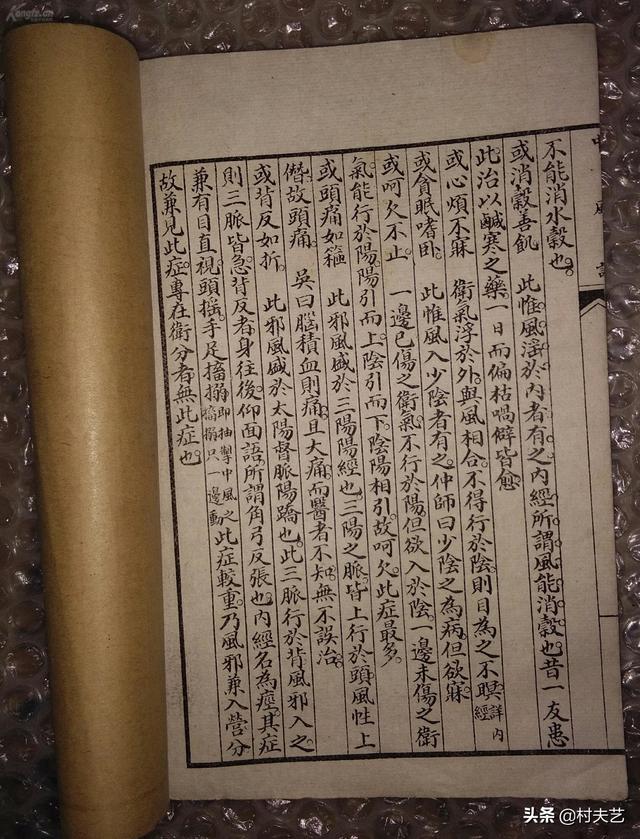 中風論
不能消水穀也
或消穀善飢　此惟風淫於內者有之內經所謂風能消穀也昔一友患
此治以鹹寒之藥一日而偏枯喎僻皆愈
或心煩不寐　衛氣浮於外與風相合不得行於陰則目為之不瞑詳內經
或貪眠嗜卧　此惟風入少陰者有之仲師曰少陰之為病但欲寐
或呵欠不止　一邊已傷之衛氣不行於陽但欲入於陰一邊未傷之衛
氣能行於陽陽引而上陰引而下陰陽相引故呵欠此症最多
或頭痛如箍　此邪風盛於三陽陽經也三陽之脈皆上行於頭風性上
僭故頭痛　吳曰腦積血則痛且大痛而醫者不知無不誤治
或背反如折　此邪風盛於太陽督脈陽蹻也此三脈行於背風邪入之
則三脈皆急背反者身往後仰面語所謂角弓反張也內經名為痙其症
兼有目直視頭搖手足搐搦即抽掣中風之搐搦只一邊動此症較重乃風邪兼入營分
故兼見此症專在衛分者無此症也
Kongfz.cn
头条 @村夫艺